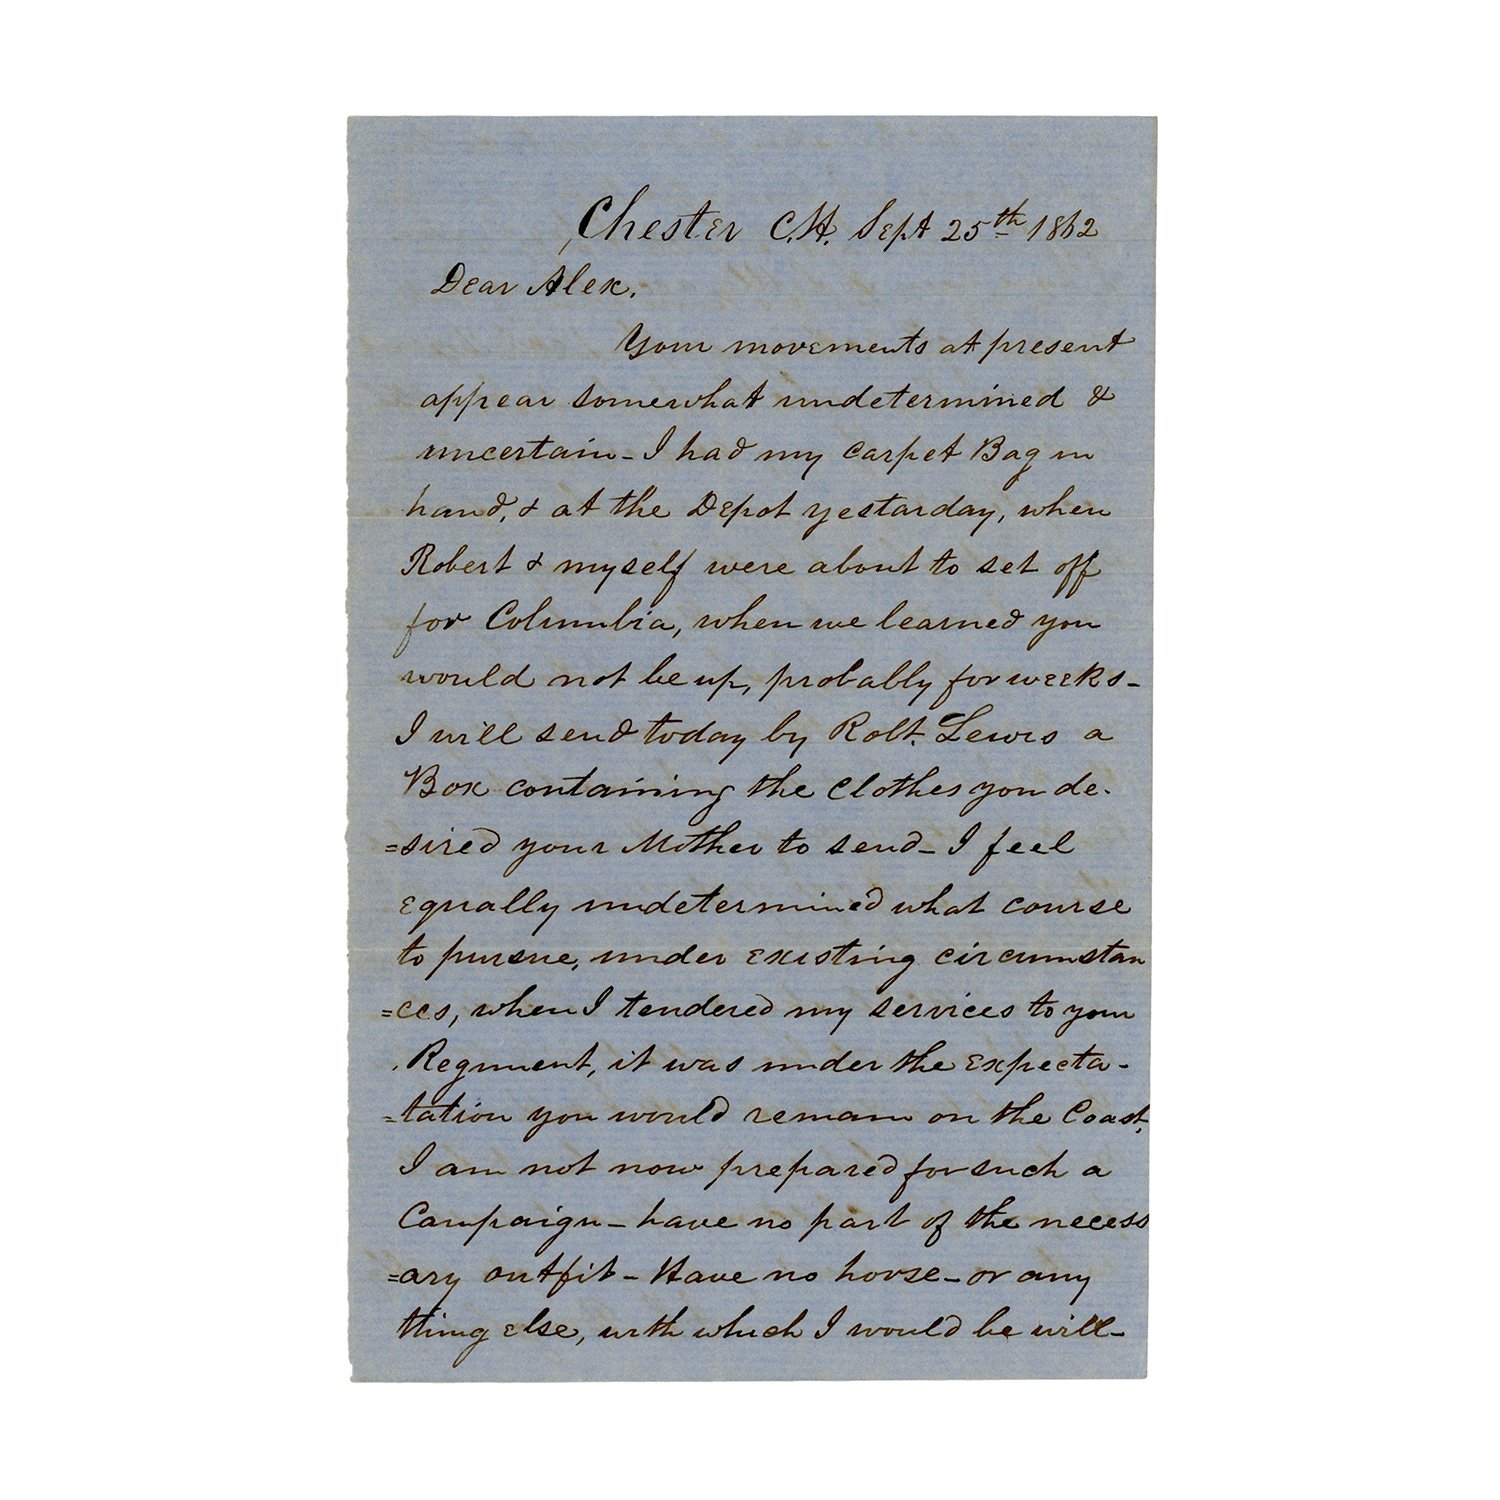 Chester C.H. Sept 25th 1862
Dear Alex.
Your movements at present
appear somewhat undetermined &
uncertain - I had my carpet Bag in
hand, & at the Depot yestarday, when
Robert & myself were about to set off
for Columbia, when we learned you
would not be up, probably for weeks -
I will send today by Robt. Lewis a
Box containing the clothes you de-
=sired your Mother to send - I feel
equally undetermined what course
to pursue, under existing circumstan
=ces, when I tendered my services to your
Regiment, it was under the expecta-
=tation you would remain on the Coast,
I am not now prepared for such a
Campaign - have no part of the necess
=ary outfit - Have no horse - or any
thing else, with which I would be will-